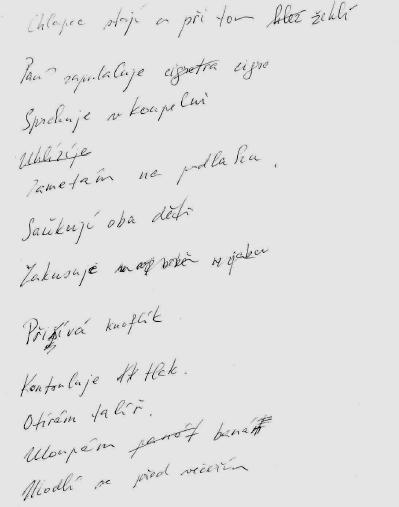 Chlapec stojí a při tom žehlí
Paní zapaluje cigaretra cigre
Sprchuje v koupelni
Uklízíje
Zametám na podlaku.
Saňkují oba děti
Zakusuje jabku
Přišívá knoflík
Kontroluje tlak.
Otírám talíř.
Uloupám banát
Modlí se před večeřím